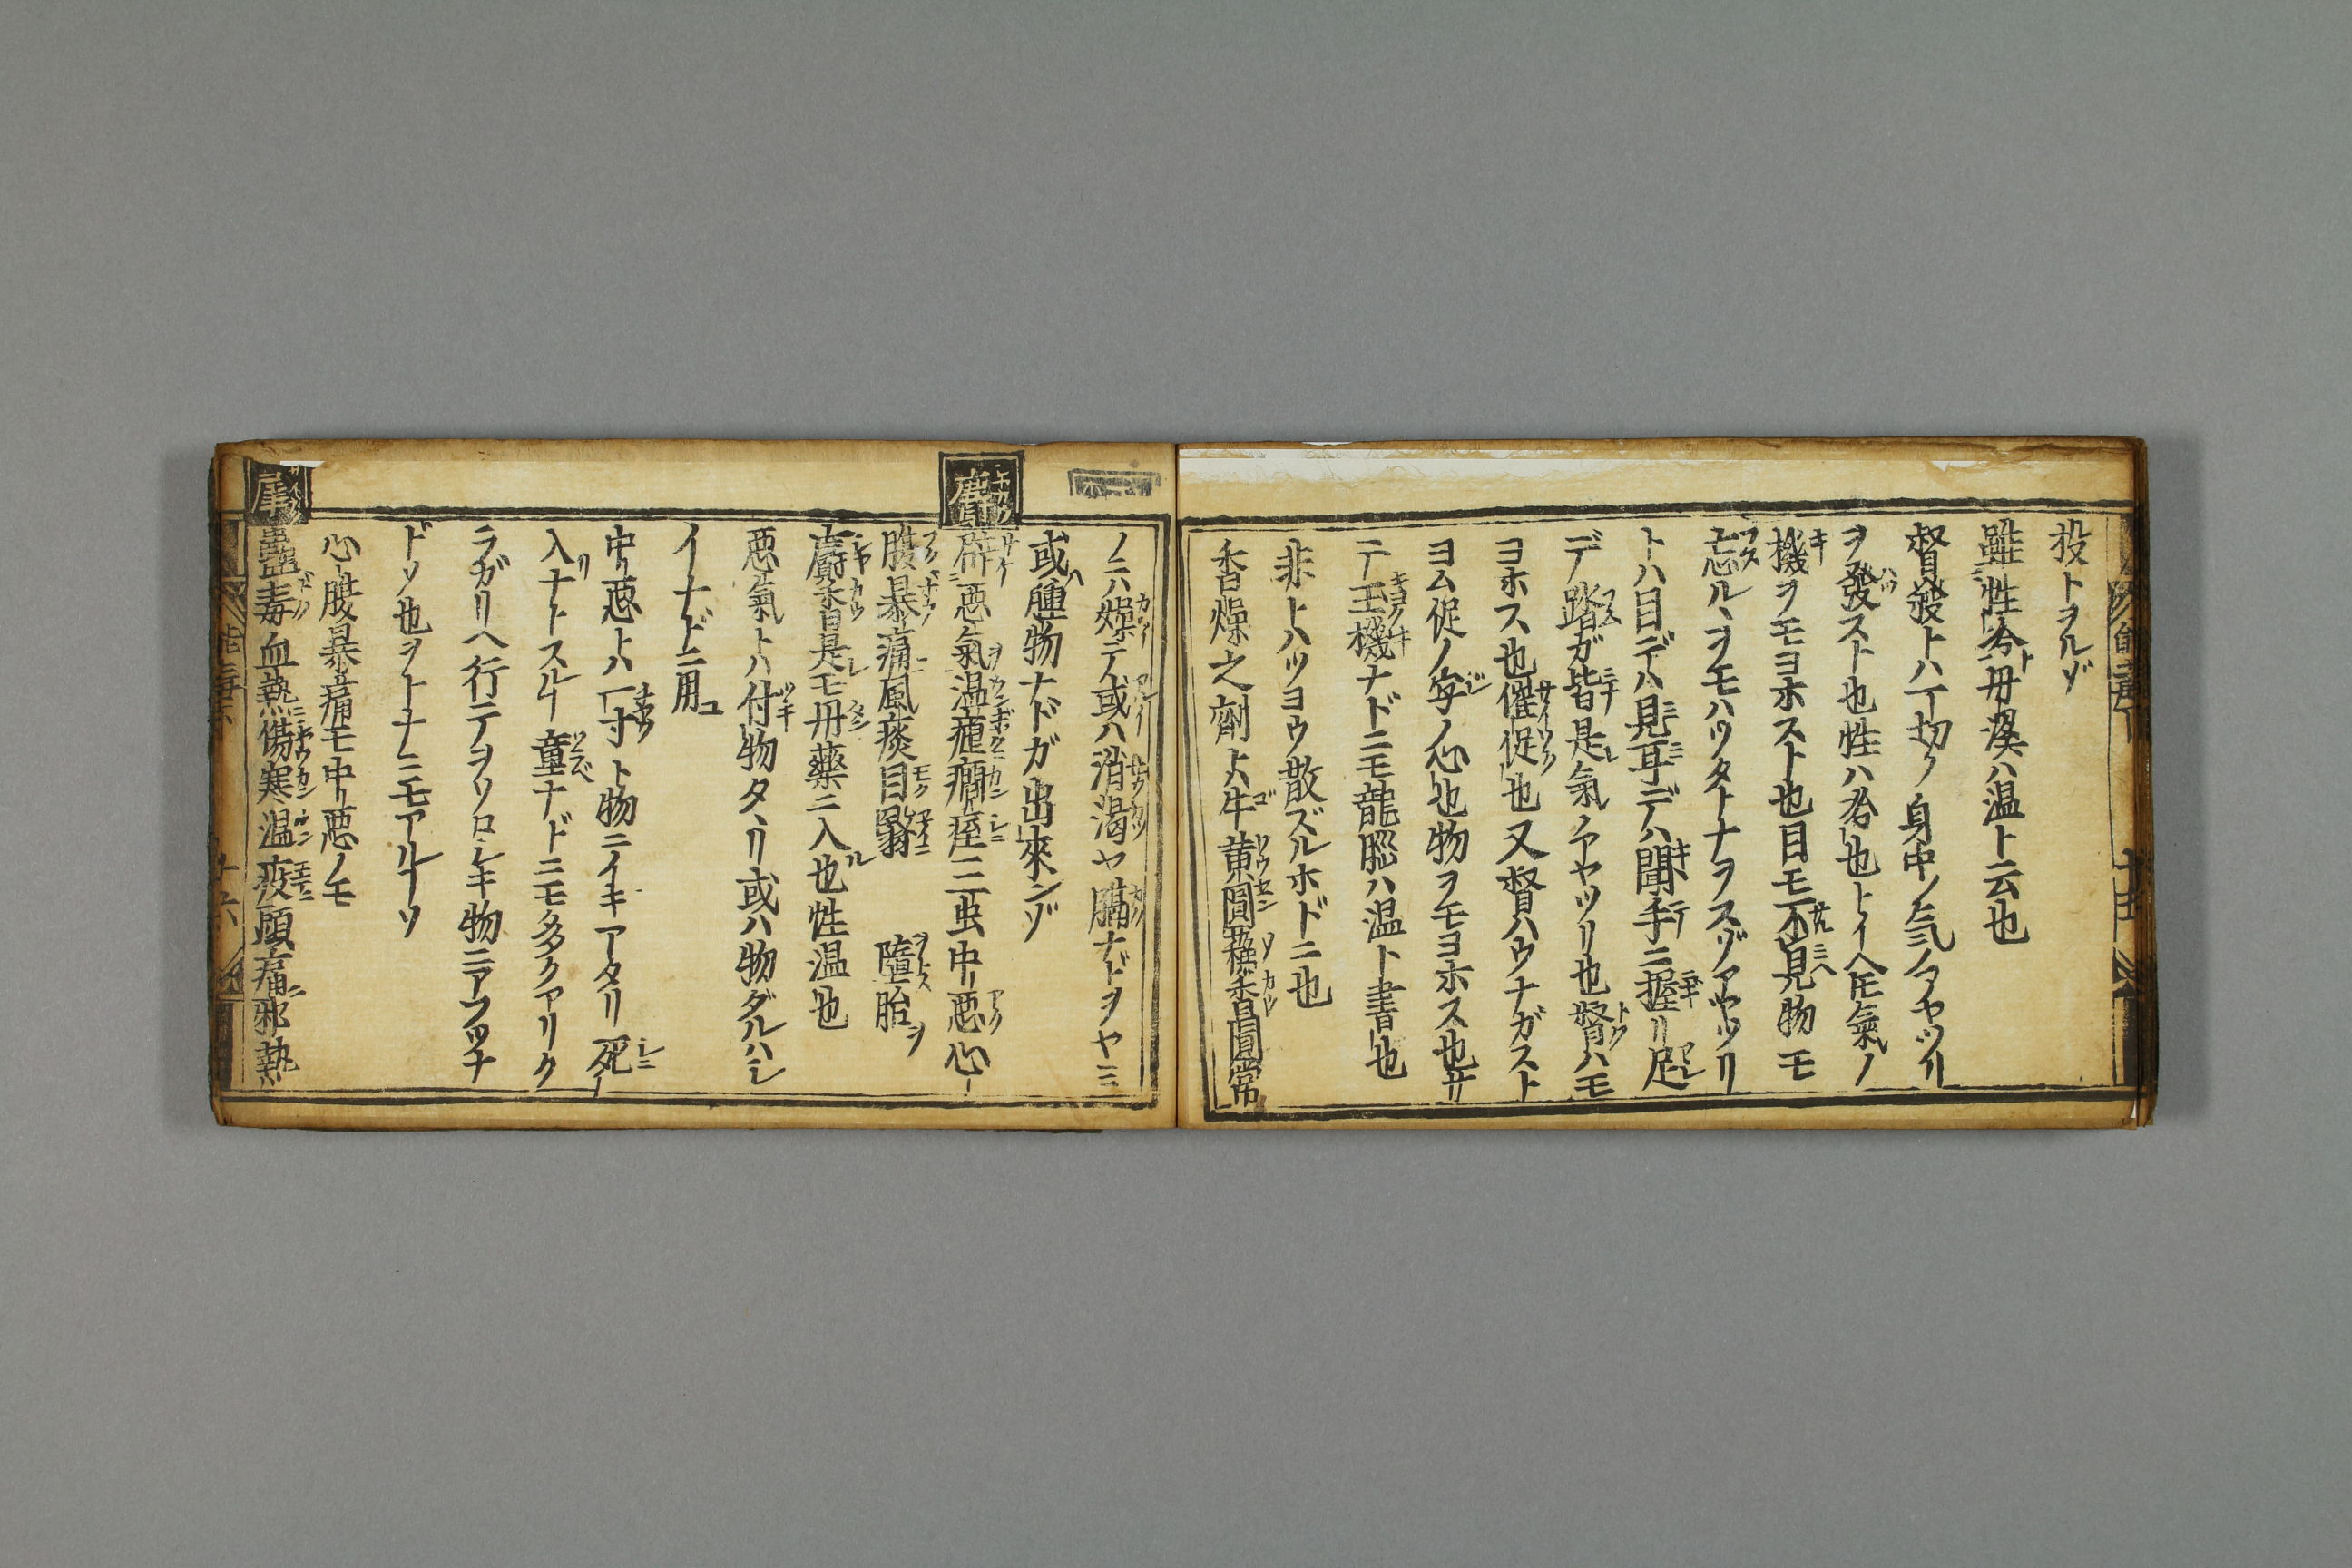 投トヲルゾ
雖性冷ト丹溪ハ温ト云也
督發トハ一切ノ身中ノ気ノアヤツリ
ヲ發スト也性ハ君也トイヘ氣ノ
機ヲモヨホスト也目モ不見物モ
忘ルヽヲモハツタトナヲスゾアヤツリ
トハ目デハ見耳デハ聞手ニ握リ足
デ踏ガ皆是氣ノアヤツリ也督ハモ
ヨホス也催促也又督ハウナガスト
ヨム促ノ字ノ心也物ヲモヨホス也
テ玉機ナドニモ龍脳ハ温ト書也
非トハツヨウ散ズルホドニ也
香燥之劑トハ牛黄圓藿香圓常
ノニハ燥テ或ハ消渇ヤ膈ナドヲヤミ
或ハ腫物ナドガ出來ンゾ
麝
辟悪氣温瘧癇痙三虫中リ悪心
腹暴痛風痰目翳 墮胎
麝香是モ丹藥ニ入也性温也
悪氣トハ付物タヽリ或ハ物グルハシ
イナドニ用
中リ悪トハ一寸ト物ニイキアタリ死
入ナトスル童ナドニモ多クアリク
ラガリヘ行テヲソロシキ物ニアフツナ
ドソ也ヲトナニモアルソ
心腹暴痛モ中リ悪ノモ
犀
蠱毒血熱傷寒温疫頭痛邪熱